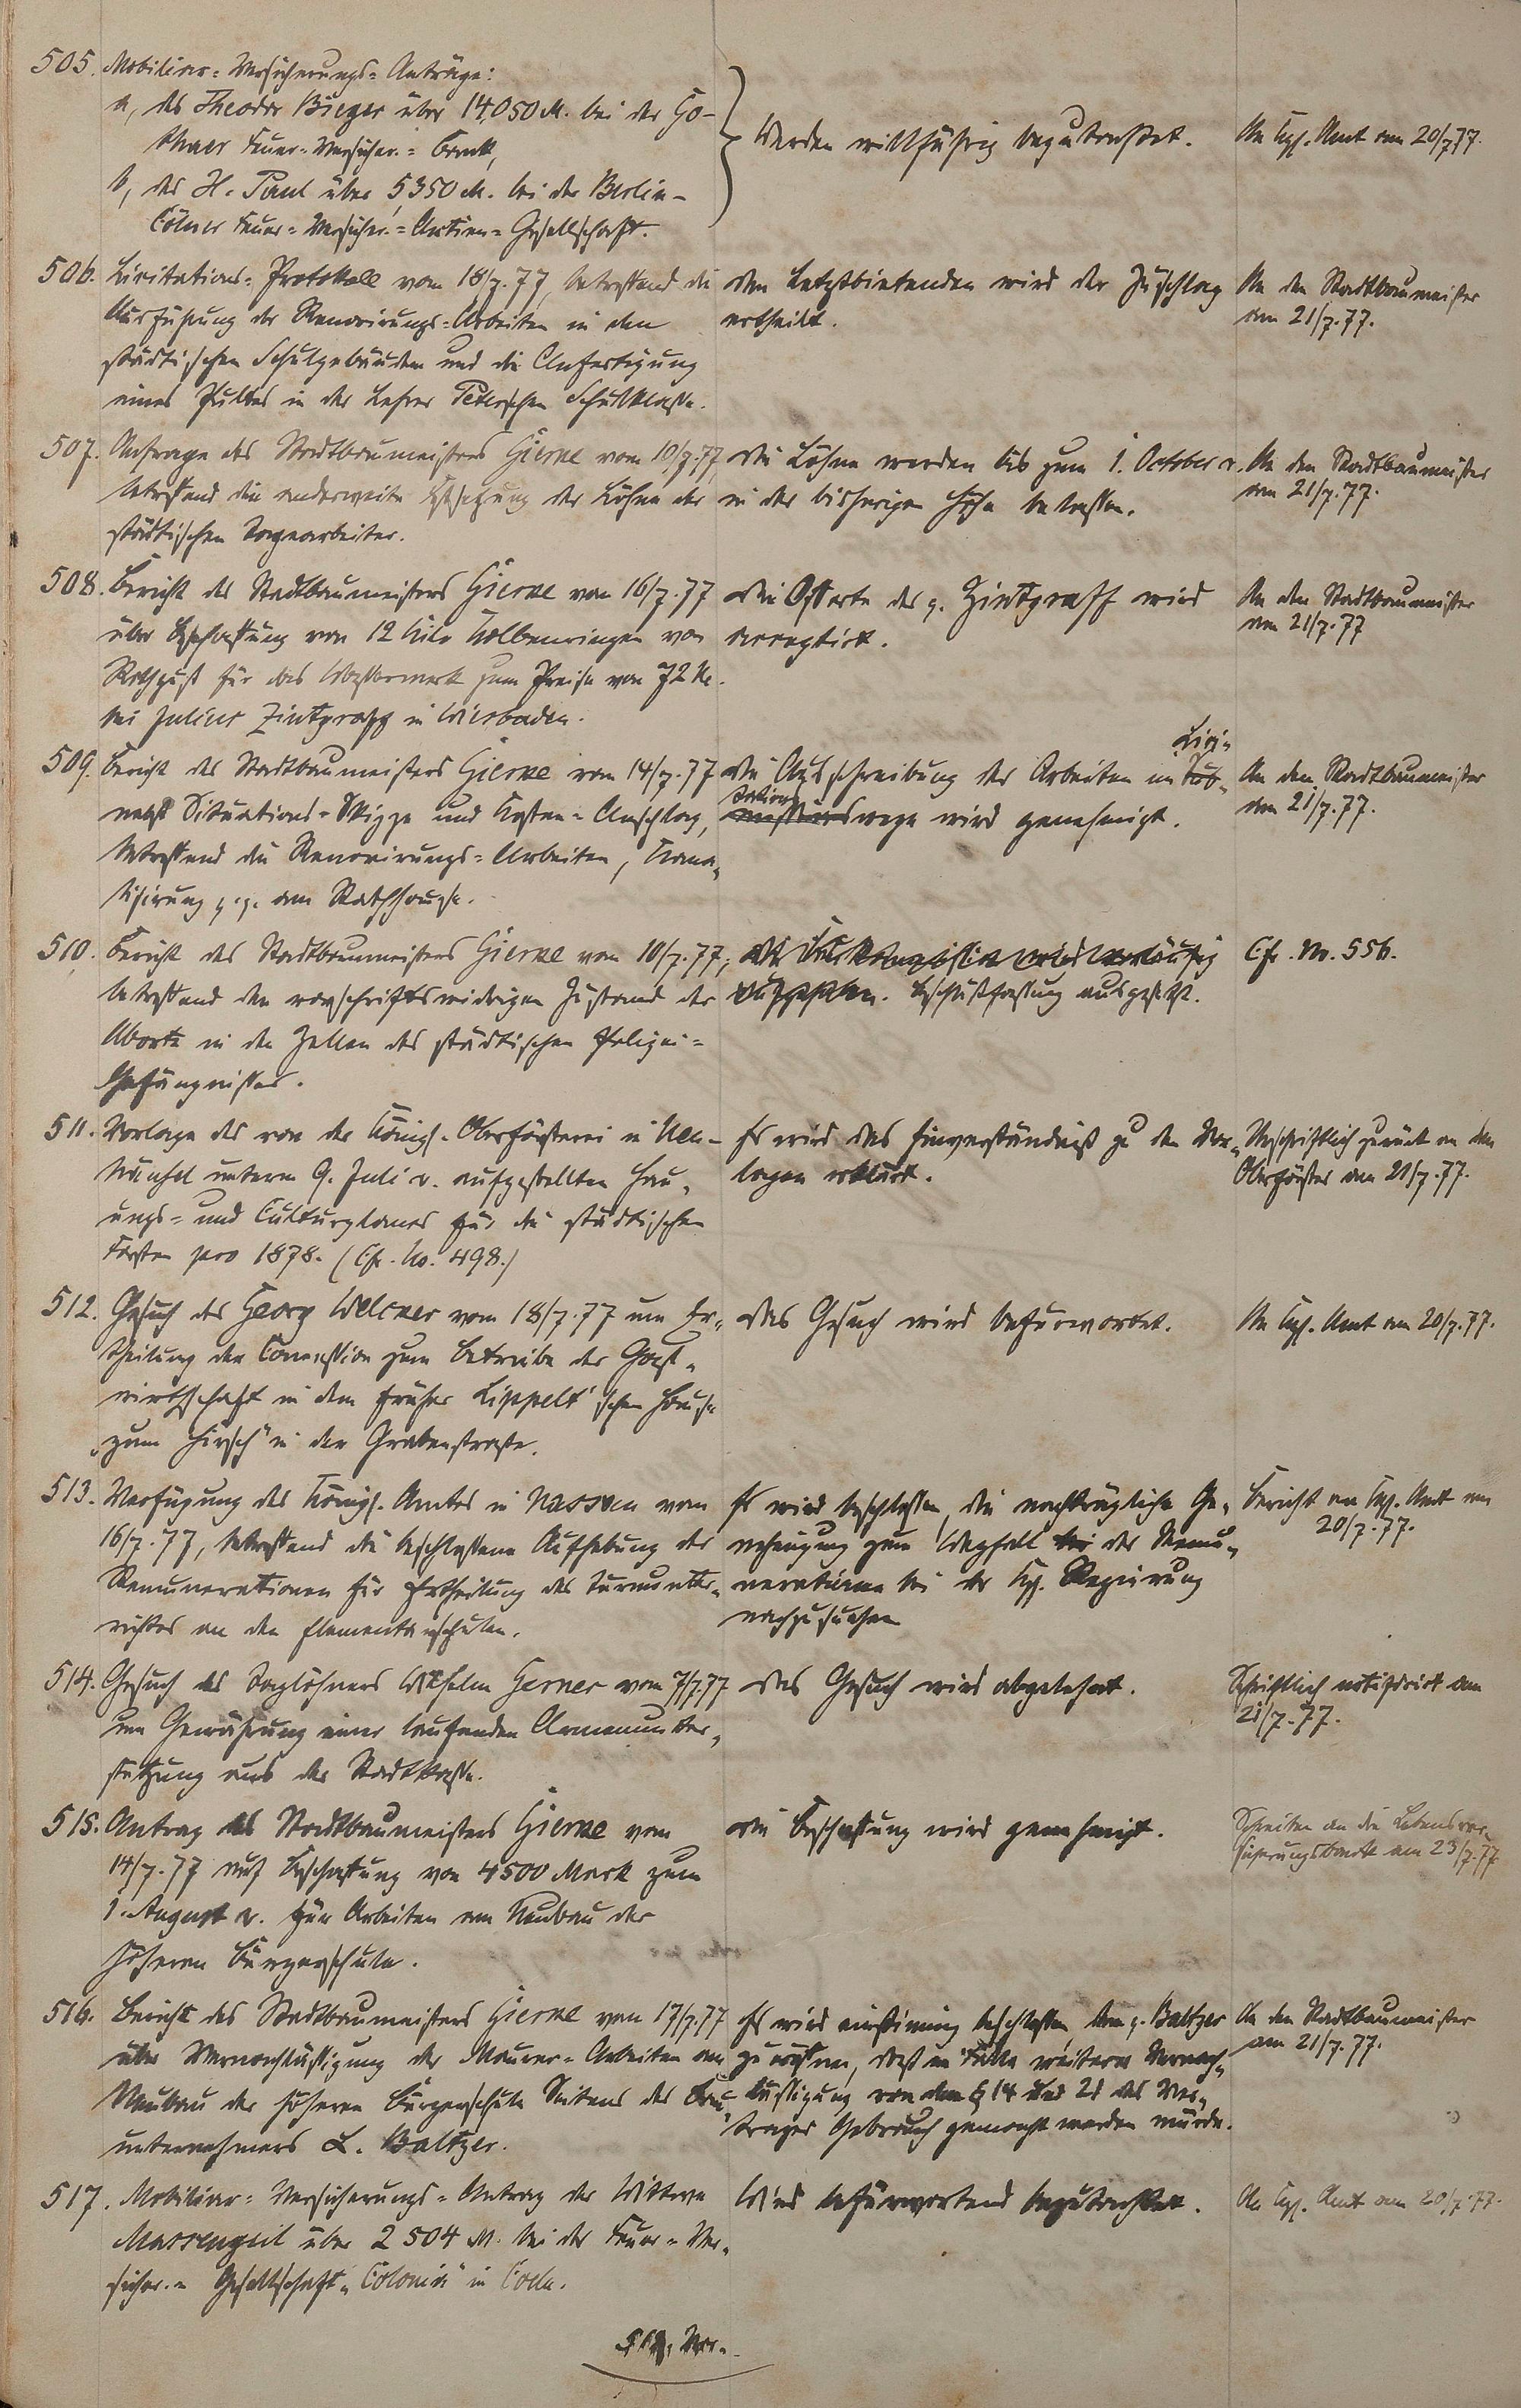 505. Mobiliar-Versicherungs-Anträge:
a, des Theodor Bieger über 14,050 M. bei der Go-
thaer Feuer-Versicher.-Bank,
b, des H. Paul über 5350 M. bei der Berlin-
Cölner Feuer-Versicher.-Actien-Gesellschaft.
Werden willfährig begutachtet.
An Kgl. Amt am 20/7 77.
506. Licitations-Protokoll vom 18/7. 77, betreffend die
Ausführung der Renovirungs-Arbeiten in den
städtischen Schulgebäuden und die Anfertigung
eines Pultes in der Lehrer Peter'schen Schulklasse.
Dem Letztbietenden wird der Zuschlag
ertheilt.
An den Stadtbaumeister
am 21/7. 77.
507. Anfrage des Stadtbaumeisters Gierke vom 10/7. 77,
betreffend die anderweite Festsetzung der Löhne der
städtischen Tagearbeiter.
Die Löhne werden bis zum 1. October c.
in der bisherigen Höhe belassen.
An den Stadtbaumeister
am 21/7. 77.
508. Bericht des Stadtbaumeisters Gierke vom 16/7. 77
über Beschaffung von 12 Kilo Kolbenringen von
Rothguß für das Wasserwerk zum Preise von 72 M.
bei Julius Zintgraff in Wiesbaden.
Die Offerte des p. Zintgraff wird
acceptirt.
An den Stadtbaumeister
am 21/7. 77
509. Bericht des Stadtbaumeisters Gierke vom 14/7. 77
nebst Situations-Skizze und Kosten-Anschlag,
betreffend die Renovirungs-Arbeiten, Kana-
lisirung p. p. am Rathhause.
Lici-
Die Ausschreibung der Arbeiten im Sub-
tations
missionswege wird genehmigt.
An den Stadtbaumeister
am 21/7. 77.
510. Bericht des Stadtbaumeisters Gierke vom 10/7. 77,
betreffend den vorschriftswidrigen Zustand der
Aborte in den Zellen des städtischen Polizei-
Gefängnisses.
Beschlußfassung ausgesetzt.
Cfr. No. 556.
511. Vorlage des von der Königl. Oberförsterei in Neu-
häusel unterm 9. Juli c. aufgestellten Hau-
ungs- und Culturplanes für die städtischen
Forsten pro 1878. (Cfr. No. 498.)
Es wird das Einverständniß zu den Vor-
lagen erklärt.
Urschriftlich zurück an den
Oberförster am 21/7. 77.
512. Gesuch des Georg Welcker vom 18/7. 77 um Er-
theilung der Concession zum Betriebe der Gast-
wirthschaft in dem früher Lippelt'schen Hause
"zum Hirsch" in der Grabenstraße.
Das Gesuch wird befürwortet.
An Kgl. Amt am 20/7. 77.
513. Verfügung des Königl. Amtes in Nassau vom
16/7. 77, betreffend die beschlossene Aufhebung der
Remunerationen für Ertheilung des Turnunter-
richtes an den Elementarschulen.
Es wird beschlossen, die nachträgliche Ge-
nehmigung zum Wegfall bei der Remu-
nerationen bei der Kgl. Regierung
nachzusuchen
Bericht an Kgl. Amt am
20/7. 77.
514. Gesuch des Taglöhners Wilhelm Gerner vom 7/7. 77
um Gewährung einer laufenden Armenunter-
stützung aus der Stadtkasse.
Das Gesuch wird abgelehnt.
Schriftlich notificirt am
21/7. 77.
515. Antrag des Stadtbaumeisters Gierke vom
14/7. 77 auf Beschaffung von 4500 Mark zum
1. August c. für Arbeiten am Neubau der
höheren Bürgerschule.
Die Beschaffung wird genehmigt.
Schreiben an die Lebensver-
sicherungsbank am 23/7. 77
516. Bericht des Stadtbaumeisters Gierke vom 17/7. 77
über Vernachlässigung der Maurer-Arbeiten am
Neubau der höheren Bürgerschule Seitens des Bau-
unternehmers L. Baltzer.
Es wird einstimmig beschlossen, dem p. Baltzer
zu eröffnen, daß im Falle weiterer Vernach-
lässigung von dem § 14 und 21 des Ver-
trages Gebrauch gemacht werden würde.
An den Stadtbaumeister
am 21/7. 77.
517. Mobiliar-Versicherungs-Antrag der Wittwe
Massengeil über 2504 M. bei der Feuer-Ver-
sicher.-Gesellschaft "Colonia" in Coeln.
Wird befürwortend begutachtet.
An Kgl. Amt am 20/7. 77.
518. Ver-